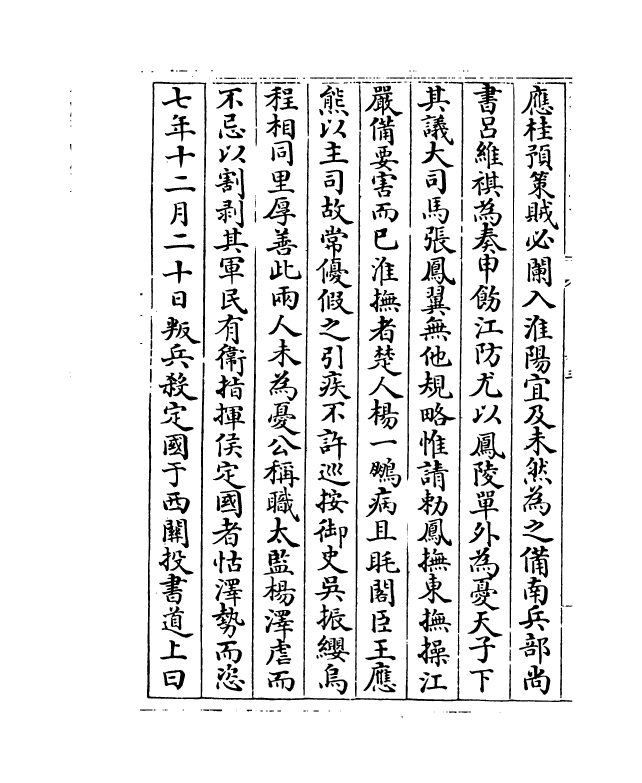 應桂預策賊必闌入淮陽宜及未然為之備南兵部尚
書吕維祺為奏申飭江防尤以鳳陵單外為憂天子下
其議大司馬張鳳翼無他規略惟請勅鳳撫東撫操江
嚴備要害而已淮撫者楚人楊一鵬病且耗閣臣王應
熊以主司故常優假之引疾不許巡按御史吳振纓烏
程相同里厚善此兩人未為憂公稱職太監楊澤虐而
不忌以割剥其軍民有衛指揮侯定國者怙澤勢而恣
七年十二月二十日叛兵殺定國于西關投書道上曰